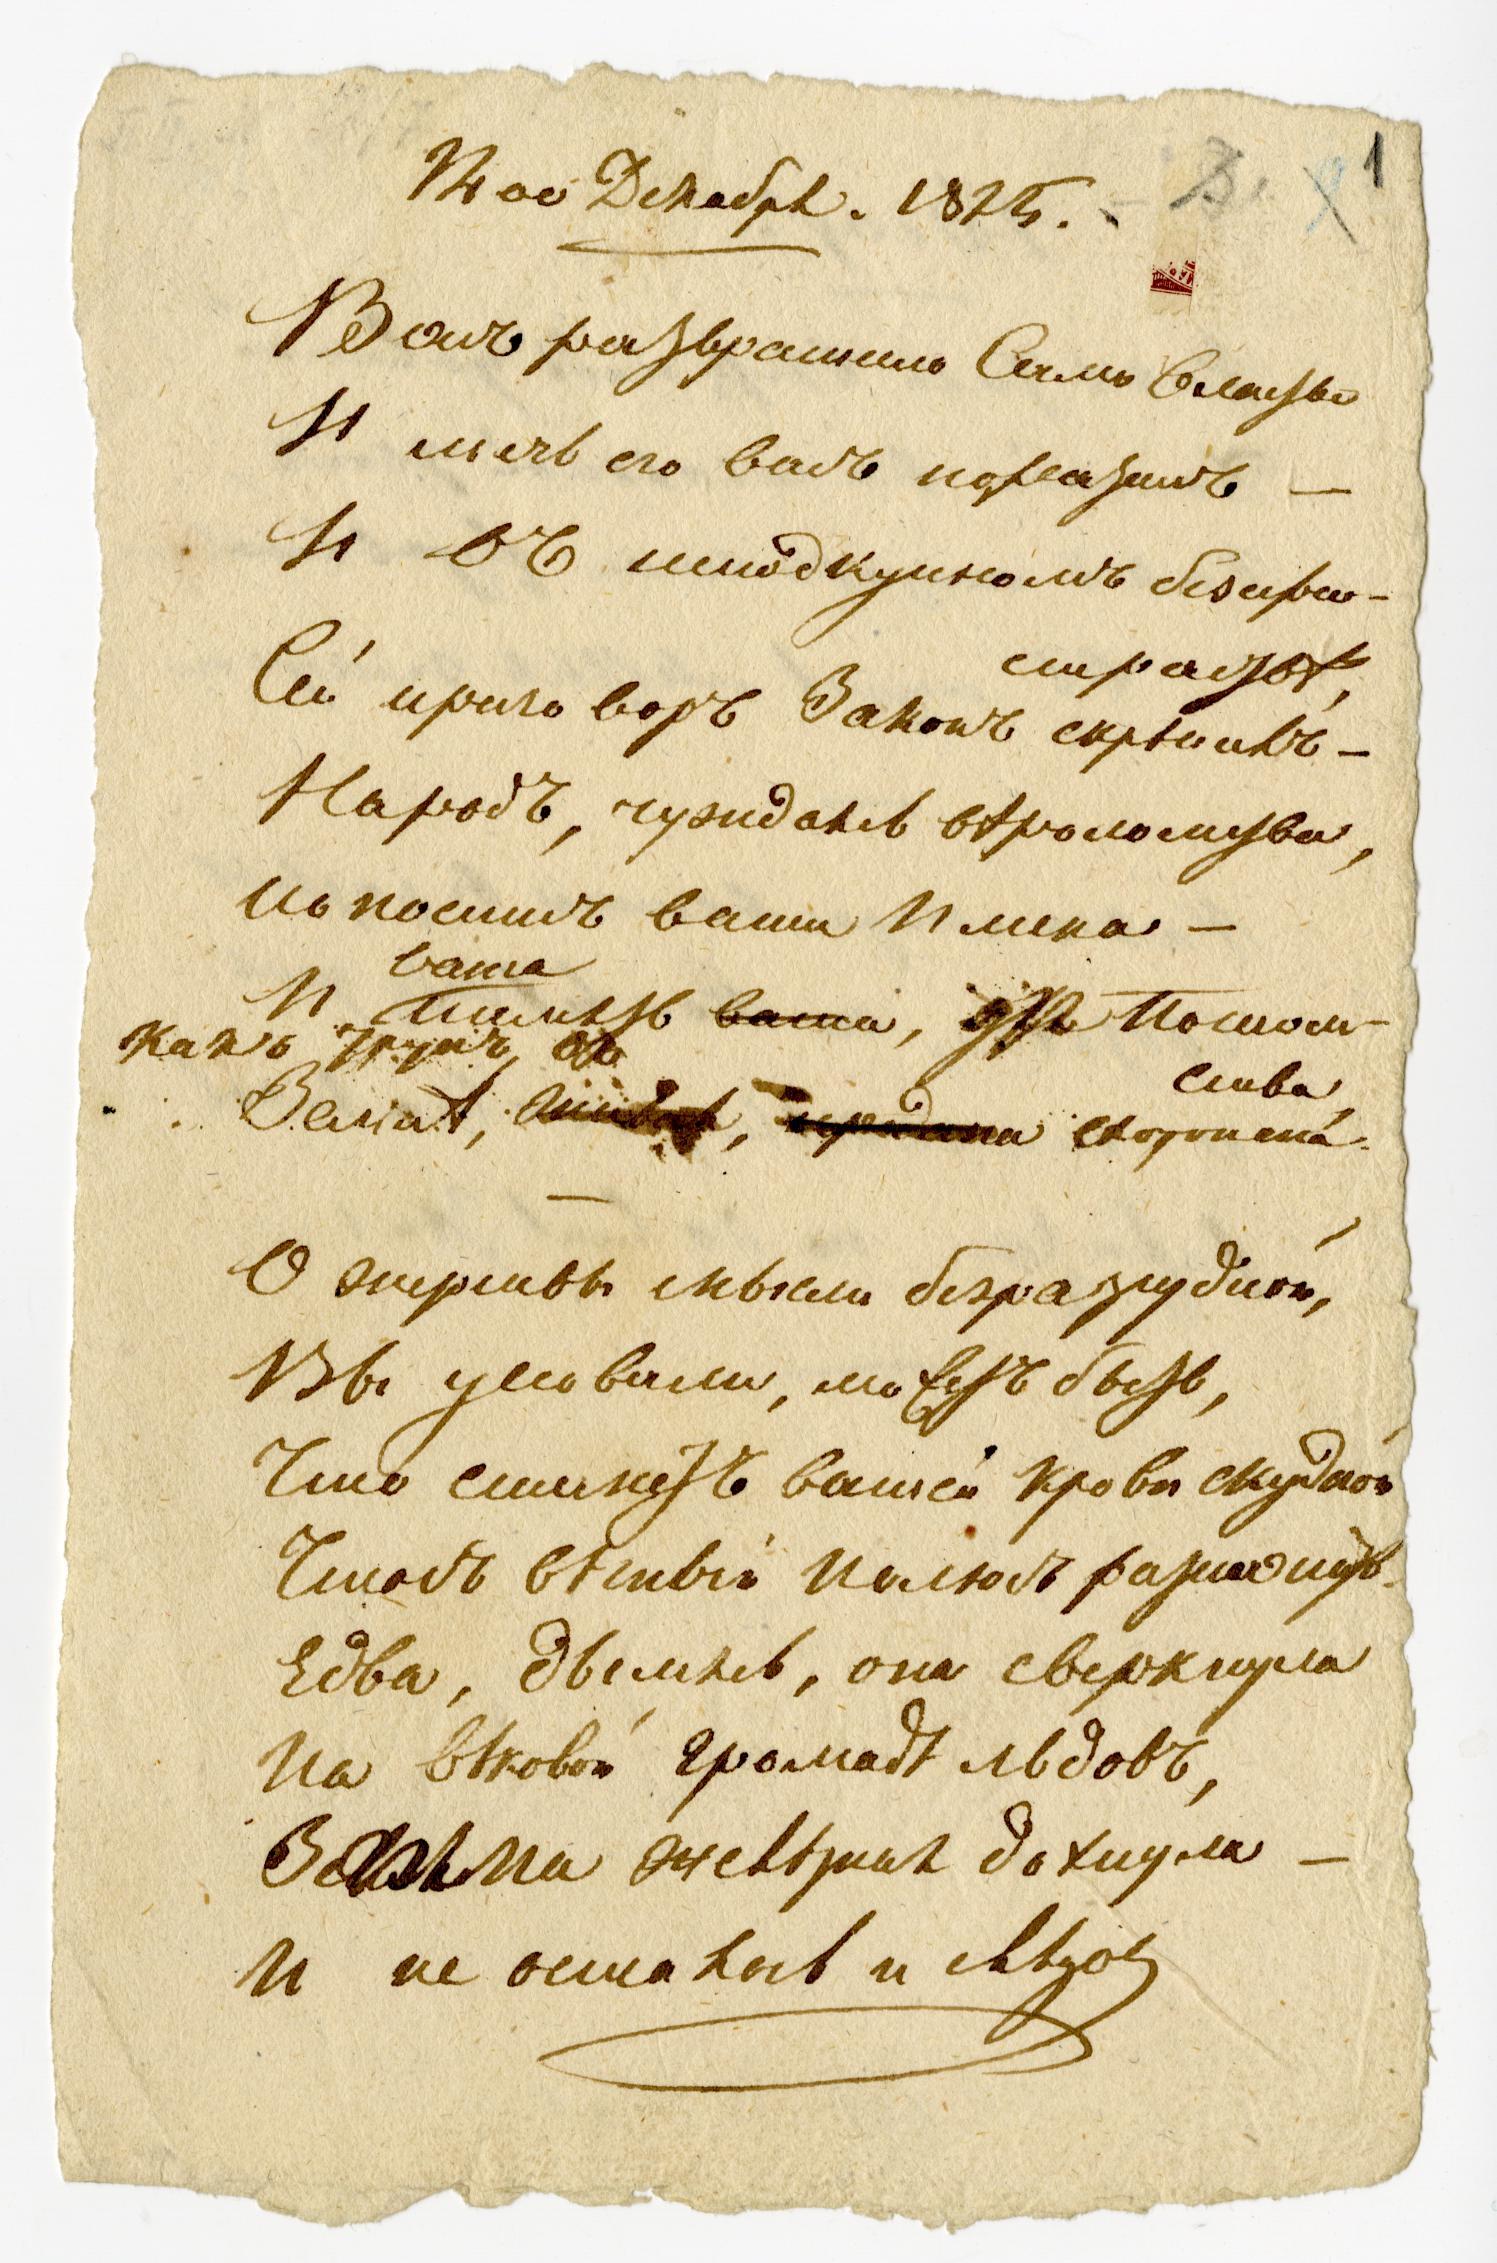 14 ое Декабря. 1825.
1
Васъ развратило Самовластье
И мечь его васъ поразилъ —
И въ неподкупномъ безпри-
страстьѣ,
Сей приговоръ Законъ скрѣпилъ —
Народъ, чуждаясь вѣроломства,
Поноситъ ваши Имена —
ваша
И память ваша, Потом-
ства,
Какъ трупъ, въ
Землѣ, схоронена.
О жертвы мысли безразсудной,
Вы уповали, можетъ быть,
Что станетъ вашей крови скудной
Чтобъ вѣчный полюсъ растопить.
Едва, дымясь, она сверкнула
На вѣковой громадѣ льдовъ,
Зима желѣзная дохнула —
И не осталось и слѣдовъ